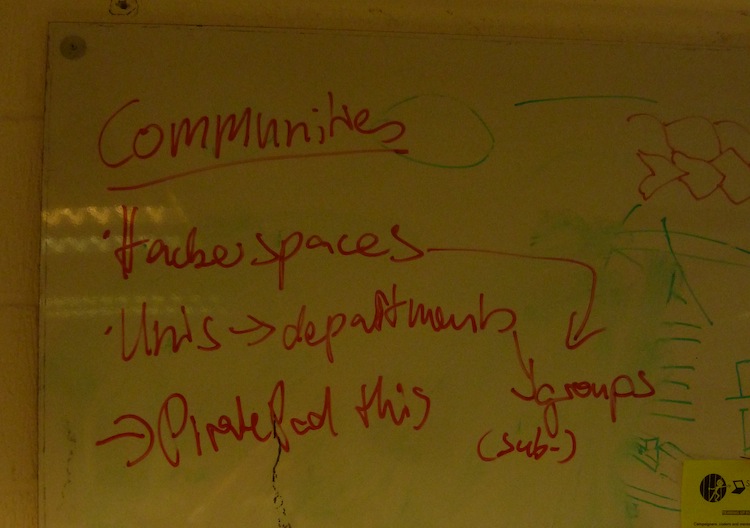 Communities
· Hackerspaces
· Unis → departments
groups
→ PiratePad this
(sub-)